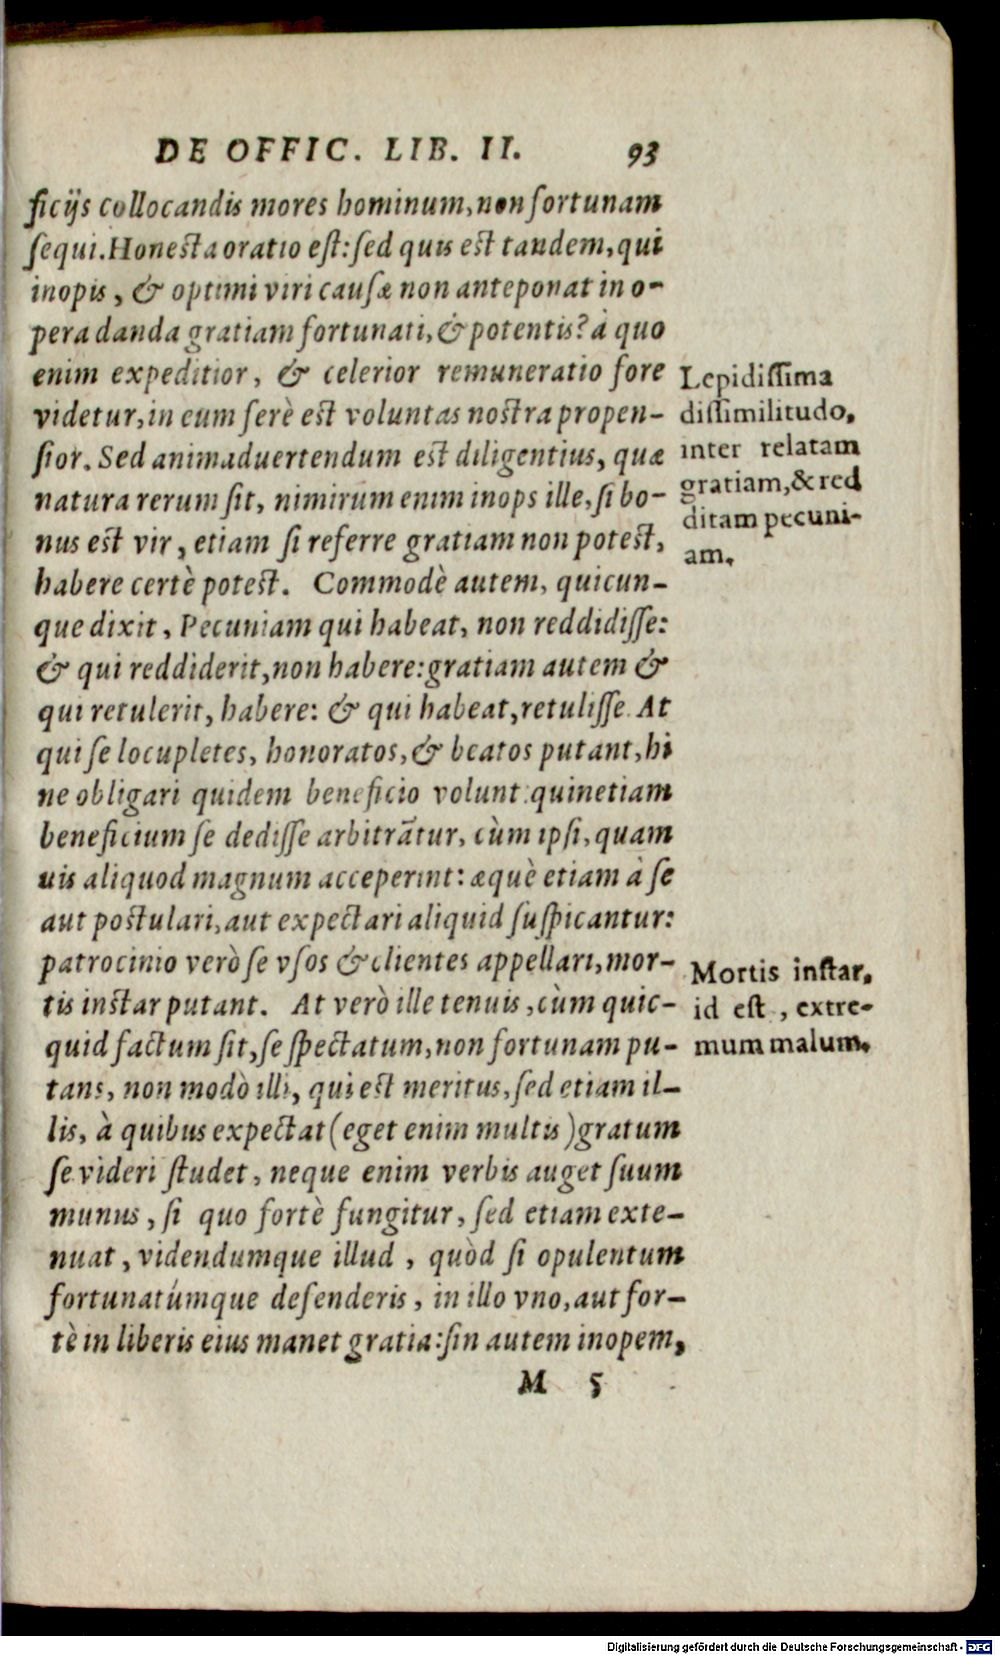 DE OFFIC. LIB. II. 93
ficijs collocandis mores hominum, non fortunam
sequi. Honesta oratio est: sed quis est tandem, qui
inopis, & optimi viri causæ non anteponat in o-
pera danda gratiam fortunati, & potentis? à quo
enim expeditior, & celerior remuneratio fore
videtur, in eum ferè est voluntas nostra propen-
sior. Sed animaduertendum est diligentius, quæ
natura rerum sit, nimirum enim inops ille, si bo-
nus est vir, etiam si referre gratiam non potest,
habere certè potest. Commodè autem, quicun-
que dixit, Pecuniam qui habeat, non reddidisse:
& qui reddiderit, non habere: gratiam autem &
qui retulerit, habere: & qui habeat, retulisse. At
qui se locupletes, honoratos, & beatos putant, hi
ne obligari quidem beneficio volunt: quinetiam
beneficium se dedisse arbitrātur, cùm ipsi, quam
uis aliquod magnum acceperint: æquè etiam à se
aut postulari, aut expectari aliquid suspicantur:
patrocinio verò se vsos & clientes appellari, mor-
tis instar putant. At verò ille tenuis, cùm quic-
quid factum sit, se spectatum, non fortunam pu-
tans, non modò illi, qui est meritus, sed etiam il-
lis, à quibus expectat (eget enim multis) gratum
se videri studet, neque enim verbis auget suum
munus, si quo fortè fungitur, sed etiam exte-
nuat, videndumque illud, quòd si opulentum
fortunatúmque defenderis, in illo vno, aut for-
tè in liberis eius manet gratia: sin autem inopem,
M 5
Lepidissima
dissimilitudo,
inter relatam
gratiam, & red
ditam pecuni-
am.
Mortis instar,
id est, extre-
mum malum.
Digitalisierung gefördert durch die Deutsche Forschungsgemeinschaft - DFG